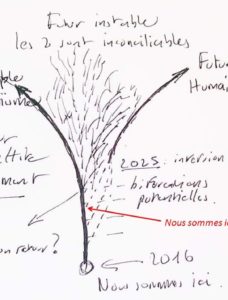 Futur instable
les 2 sont inconciliables
Futu
Humai
2025 : inversion
bifurcations
potentielles.
Nous sommes ic
on retour ?
2016
Nous sommes ici.